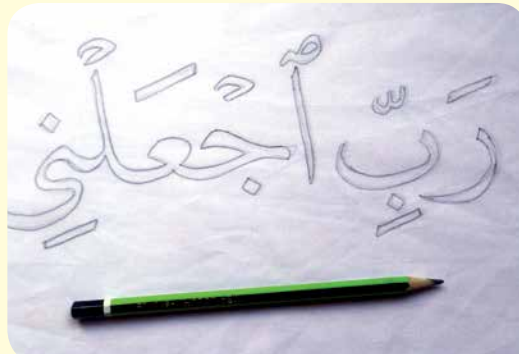 رَبِّ ٱجْعَلْنِي